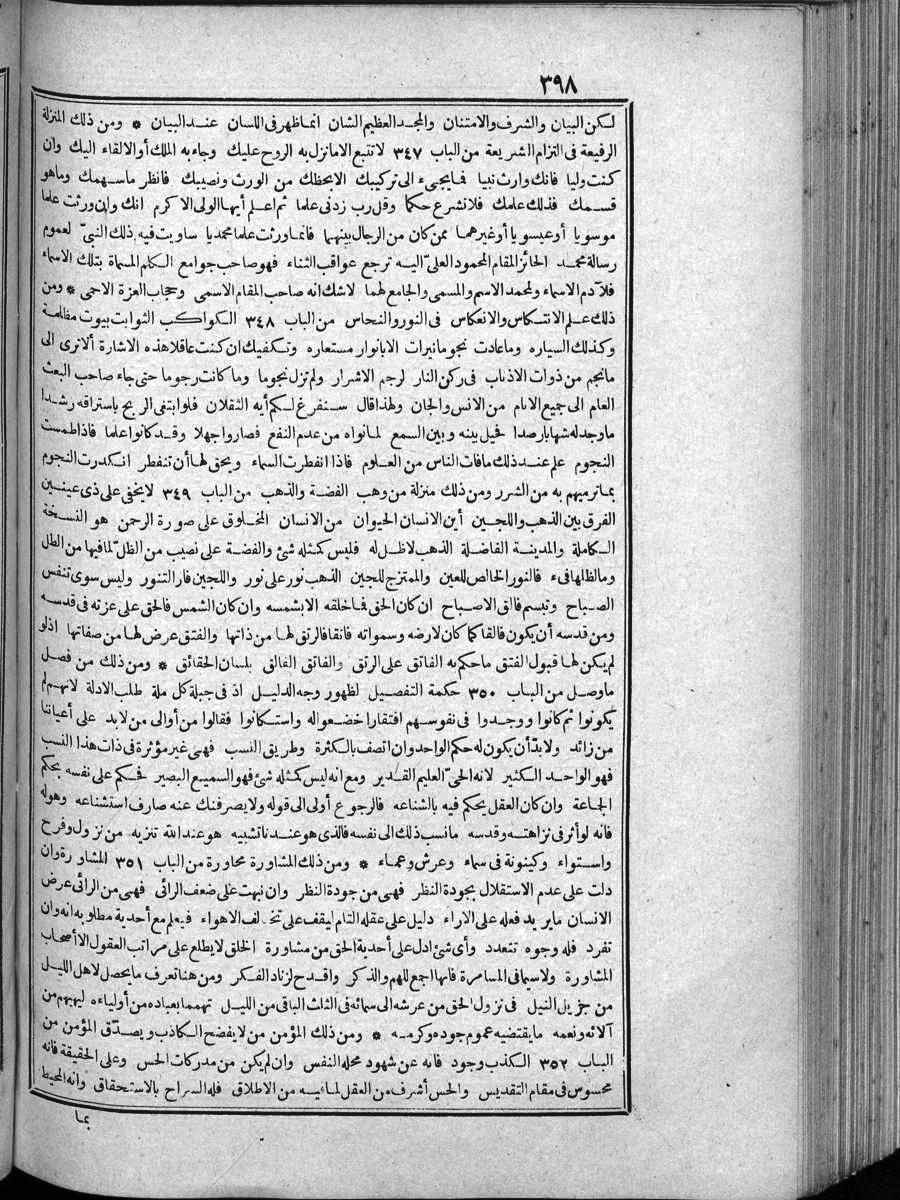 ٣٩٨
لكن البيان والشرف والامتنان والمجد العظيم الشان انما ظهر فى اللسان عند البيان * ومن ذلك المنزلة
الرفيعة فى التزام الشريعة من الباب ٣٤٧ لا تتبع الا ما نزل به الروح عليك وجاء به الملك أو الالقاء اليك وان
كنت وليا فانك وارث نبيا فما يجىء الى تركيبك الا بحظك من الورث ونصيبك فانظر ما سهمك وما هو
قسمك فذلك علمك فلا تشرع حكما وقل رب زدنى علما ثم اعلم أيها الولى الاكرم انك وان ورثت علما
موسويا أو عيسويا أو غيرهما ممن كان من الرجال بينهما فانما ورثت علما محمديا ساويت فيه ذلك النبىّ لعموم
رسالة محمد الحائز المقام المحمود العلىّ اليه ترجع عواقب الثناء فهو صاحب جوامع الكلم المسماة بتلك الاسماء
فلآدم الاسماء ولمحمد الاسم والمسمى والجامع لهما لا شك انه صاحب المقام الاسمى وحجاب العزة الاحمى * ومن
ذلك علم الانتكاس والانعكاس فى النور والنحاس من الباب ٣٤٨ الكواكب الثوابت بيوت مظلمة
وكذلك السياره وما عادت نجوما نيرات الا بانوار مستعاره وتكفيك ان كنت عاقلا هذه الاشارة ألا ترى الى
ما نجم من ذوات الاذناب فى ركن النار لرجم الاشرار ولم تزل نجوما وما كانت رجوما حتى جاء صاحب البعث
العام الى جميع الانام من الانس والجان ولهذا قال سنفرغ لكم أيه الثقلان فلو ابتغى الريح باستراقه رشدا
ما وجد له شهابا رصدا فحيل بينه وبين السمع لما نواه من عدم النفع فصاروا جهلا وقد كانوا علما فاذا طمست
النجوم علم عند ذلك ما فات الناس من العلوم فاذا انفطرت السماء ويحق لها أن تنفطر انكدرت النجوم
بما ترميهم به من الشرر ومن ذلك منزلة من وهب الفضة والذهب من الباب ٣٤٩ لا يخفى على ذى عينين
الفرق بين الذهب واللجين أين الانسان الحيوان من الانسان المخلوق على صورة الرحمن هو النسخة
الكاملة والمدينة الفاضلة الذهب لا ظل له فليس كمثله شئ والفضة على نصيب من الظلّ لما فيها من الطل
وما لظلها فىء فالنور الخالص للعين والممتزج للجين الذهب نور على نور واللجين فار التنور وليس سوى تنفس
الصباح وتبسم فالق الاصباح ان كان الحق فما خلقه الا بشمسه وان كان الشمس فالحق على عزته فى قدسه
ومن قدسه أن يكون فالقا كما كان لارضه وسمواته فاتقا فالرتق لها من ذاتها والفتق عرض لها من صفاتها اذ لو
لم يكن لها قبول الفتق ما حكم به الفاتق على الرتق والفاتق الفالق بلسان الحقائق * ومن ذلك من فصل
ما وصل من الباب ٣٥٠ حكمة التفصيل لظهور وجه الدليل اذ فى جبلة كل ملة طلب الادلة لانهم لم
يكونوا ثم كانوا ووجدوا فى نفوسهم افتقارا خضعوا له واستكانوا فقالوا من أو الى من لا بد على أعياننا
من زائد ولا بدّ أن يكون له حكم الواحد وان اتصف بالكثرة وطريق النسب فهى غير مؤثرة فى ذات هذا النسب
فهو الواحد الكثير لانه الحىّ العليم القدير ومع انه ليس كمثله شئ فهو السميع البصير فحكم على نفسه بحكم
الجماعة وان كان العقل يحكم فيه بالشناعه فالرجوع أولى الى قوله ولا يصرفنك عنه صارف استشناعه وهوله
فانه لو أثر فى نزاهته وقدسه ما نسب ذلك الى نفسه فالذى هو عندنا تشبيه هو عند الله تنزيه من نزول وفرح
واستواء وكينونة فى سماء وعرش وعماء * ومن ذلك المشاورة محاورة من الباب ٣٥١ المشاورة وان
دلت على عدم الاستقلال بجودة النظر فهى من جودة النظر وان نبهت على ضعف الرائى فهى من الرائى عرض
الانسان ما يريد فعله على الآراء دليل على عقله التام ليقف على تخالف الاهواء فيعلم مع أحدية مطلوبه انه وان
تفرد فله وجوه تتعدد وأى شئ ادل على أحدية الحق من مشاورة الخلق لا يطلع على مراتب العقول الا أصحاب
المشاورة ولا سيما فى المسامرة فانها اجمع للهم والذكر واقدح لزناد الفكر ومن هنا تعرف ما يحصل لاهل الليل
من جزيل النيل فى نزول الحق من عرشه الى سمائه فى الثلث الباقى من الليل تهمما بعباده من أولياءه ليهبهم من
آلائه ونعمه ما يقتضيه عموم جوده وكرمه * ومن ذلك المؤمن من لا يفضح الكاذب ويصدّق المؤمن من
الباب ٣٥٢ الكذب وجود فانه عن شهود محله النفس وان لم يكن من مدركات الحس وعلى الحقيقة فانه
محسوس فى مقام التقديس والحس أشرف من العقل لما فيه من الاطلاق فله السراح بالاستحقاق وانه المحيط
بما